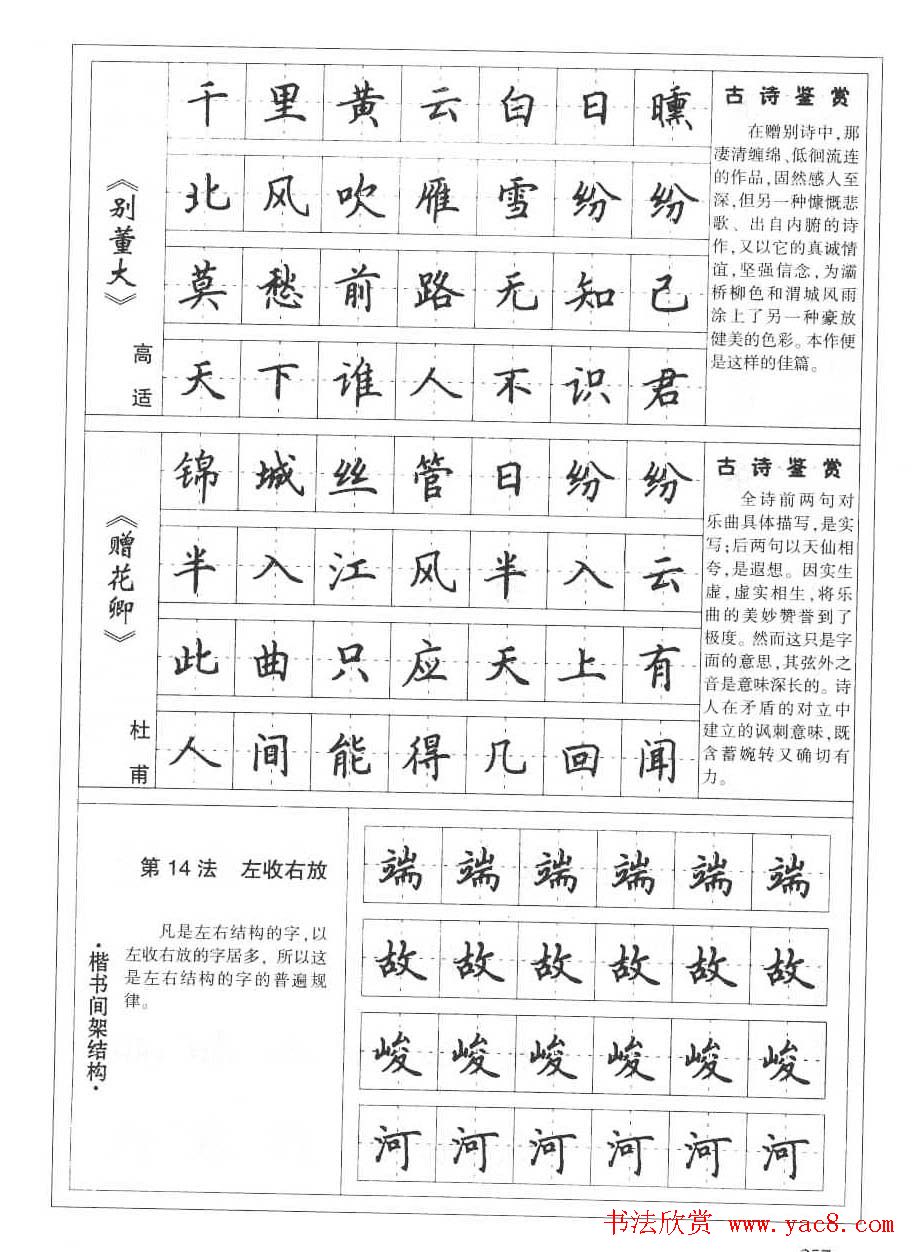 《别董大》
高适
千里黄云白日曛
北风吹雁雪纷纷
莫愁前路无知己
天下谁人不识君
古诗鉴赏
在赠别诗中,那
凄清缠绵、低徊流连
的作品,固然感人至
深,但另一种慷慨悲
歌、出自内腑的诗
作,又以它的真诚情
谊,坚强信念,为灞
桥柳色和渭城风雨
涂上了另一种豪放
健美的色彩。本作便
是这样的佳篇。
《赠花卿》
杜甫
锦城丝管日纷纷
半入江风半入云
此曲只应天上有
人间能得几回闻
古诗鉴赏
全诗前两句对
乐曲具体描写,是实
写;后两句以天仙相
夸,是遐想。因实生
虚,虚实相生,将乐
曲的美妙赞誉到了
极度。然而这只是字
面的意思,其弦外之
音是意味深长的。诗
人在矛盾的对立中
建立的讽刺意味,既
含蓄婉转又确切有
力。
·楷书间架结构·
第14法 左收右放
凡是左右结构的字,以
左收右放的字居多, 所以这
是左右结构的字的普遍规
律。
端端端端端端
故故故故故故
峻峻峻峻峻峻
河河河河河河
书法欣赏 www.yac8.com